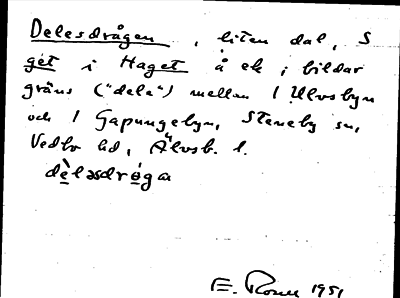 Delesdrågen, liten dal, S
get i Haget å ek, i bildar
gräns ("dela") mellan 1 Ulvsbyn
och 1 Gapungebyn, Steneby sn,
Vedbo hd, Älvsb. l.
dèlesdrǿga
E. 1951